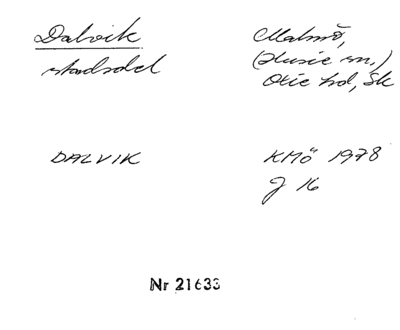 Dalvik
stadsdel
Malmö,
(Husie sn,)
Oxie hd, Sk
DALVIK
KMÖ 1978
J 16
Nr 21633